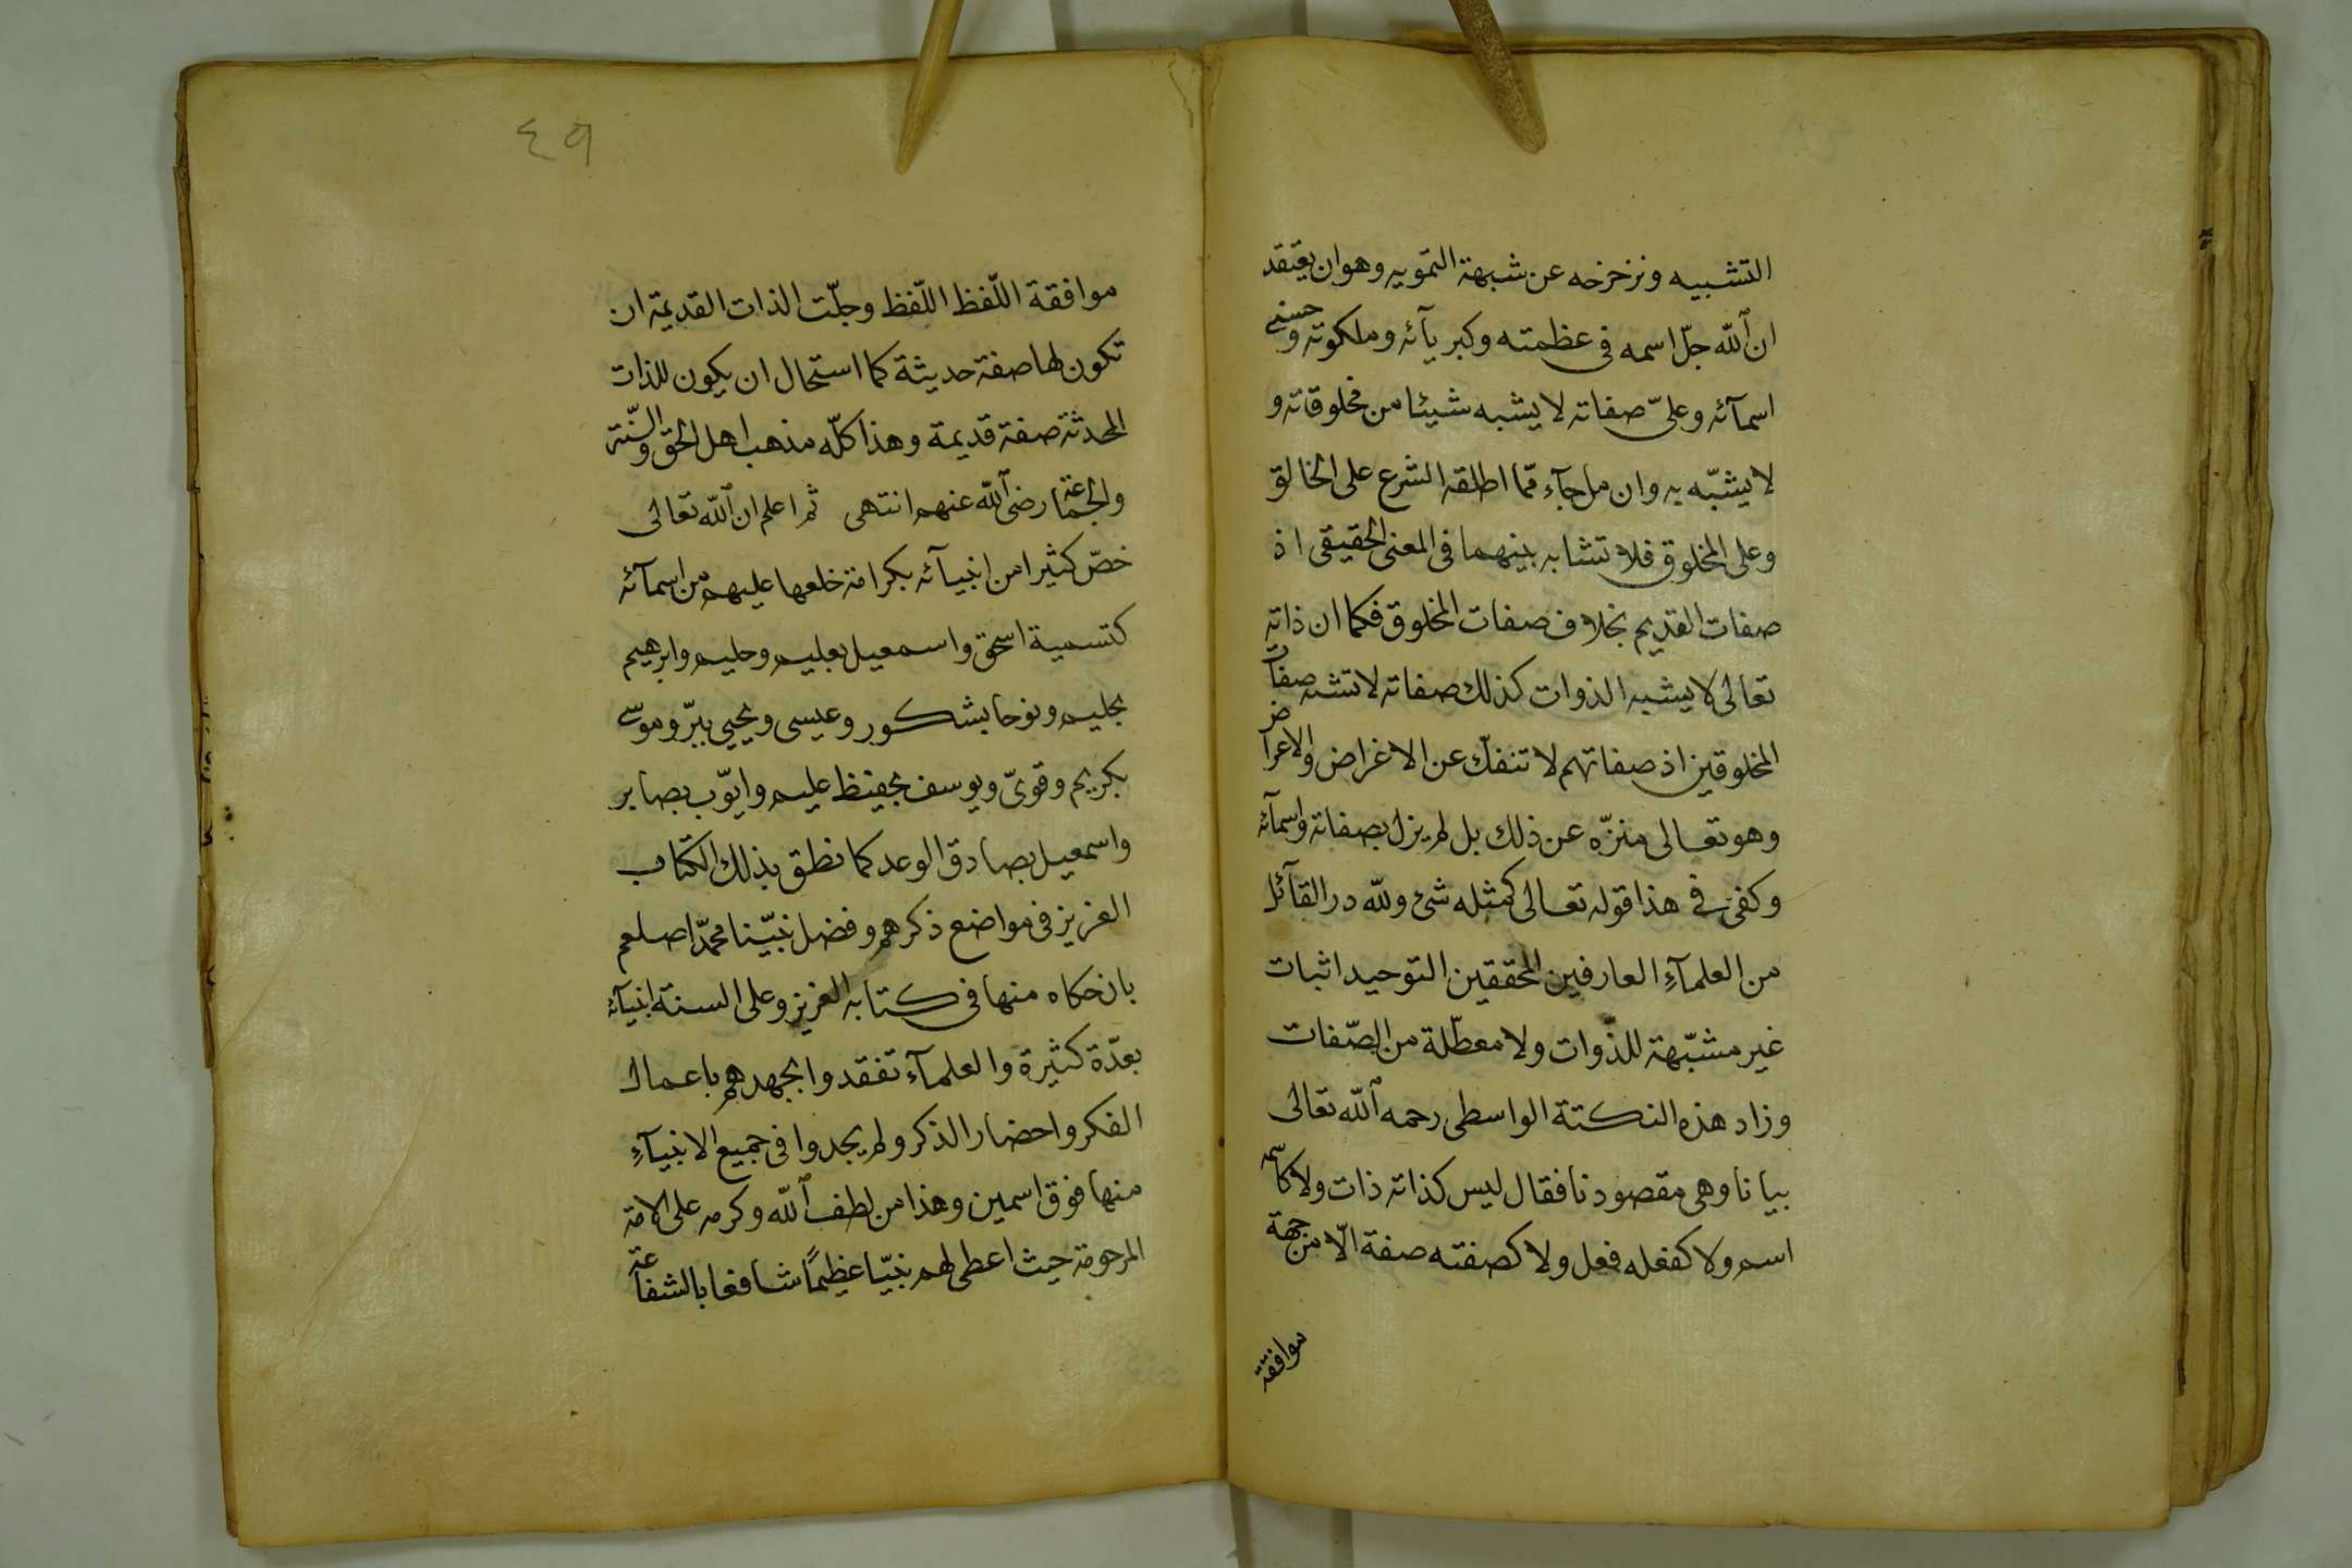 التشبيه ونزخزحه عن شبهة التمويه وهو ان يعتقد
ان الله جلّ اسمه فى عظمته وكبريآئه وملكوته وحسنى
اسمآئه وعلىّ صفاته لا يشبه شيئا من مخلوقاته و
لا يشبّه به وان ما جآء ممّا اطلقه الشرع على الخالق
وعلى المخلوق فلا تشابه بينهما فى المعنى الحقيقى اذ
صفات القديم بخلاف صفات المخلوق فكما ان ذاته
تعالى لا يشبه الذوات كذلك صفاته لا تشبه صفات
المخلوقين اذ صفاتهم لا تنفكّ عن الاغراض والاعراض
وهو تعالى منزّه عن ذلك بل لم يزل بصفاته واسمآئه
وكفى فى هذا قوله تعالى كمثله شئ ولله در القآئل
من العلمآءِ العارفين المحققين التوحيد اثبات
غير مشبّهة للذّوات ولا معطّلة من الصّفات
وزاد هذه النكتة الواسطى رحمه الله تعالى
بيانا وهى مقصودنا فقال ليس كذاته ذات ولا كاسمه
اسم ولا كفعله فعل ولا كصفته صفة الّا من جهة
موافقة
٤٩
موافقة اللّفظ اللّفظ وجلّت الذات القديمة ان
تكون لها صفة حديثة كما استحال ان يكون للذات
المحدثة صفة قديمة وهذا كلّه مذهب اهل الحق والسّنّة
والجماعة رضى الله عنهم انتهى ثم اعلم ان الله تعالى
خصّ كثيرا من انبيآئه بكرامة خلعها عليهم من اسمآئه
كتسمية اسحق واسمعيل بعليم وحليم وابرهيم
بحليم ونوحا بشكور وعيسى ويحيى ببرّ وموسى
بكريم وقوىّ ويوسف بحفيظ عليم وايّوب بصابر
واسمعيل بصادق الوعد كما نطق بذلك الكتاب
العزيز فى مواضع ذكرهم وفضل نبيّنا محمّدا صلعم
بان حكاه منها فى كتابه العزيز وعلى السنة انبيآئه
بعدّة كثيرة والعلمآء تفقدوا بجهدهم باعمال
الفكر واحضار الذكر ولم يجدوا فى جميع الانبيآءِ
منها فوق اسمين وهذا من لطف الله وكرمه على الامة
المرحومة حيث اعطى لهم نبيّا عظيمًا شافعا بالشفاعة